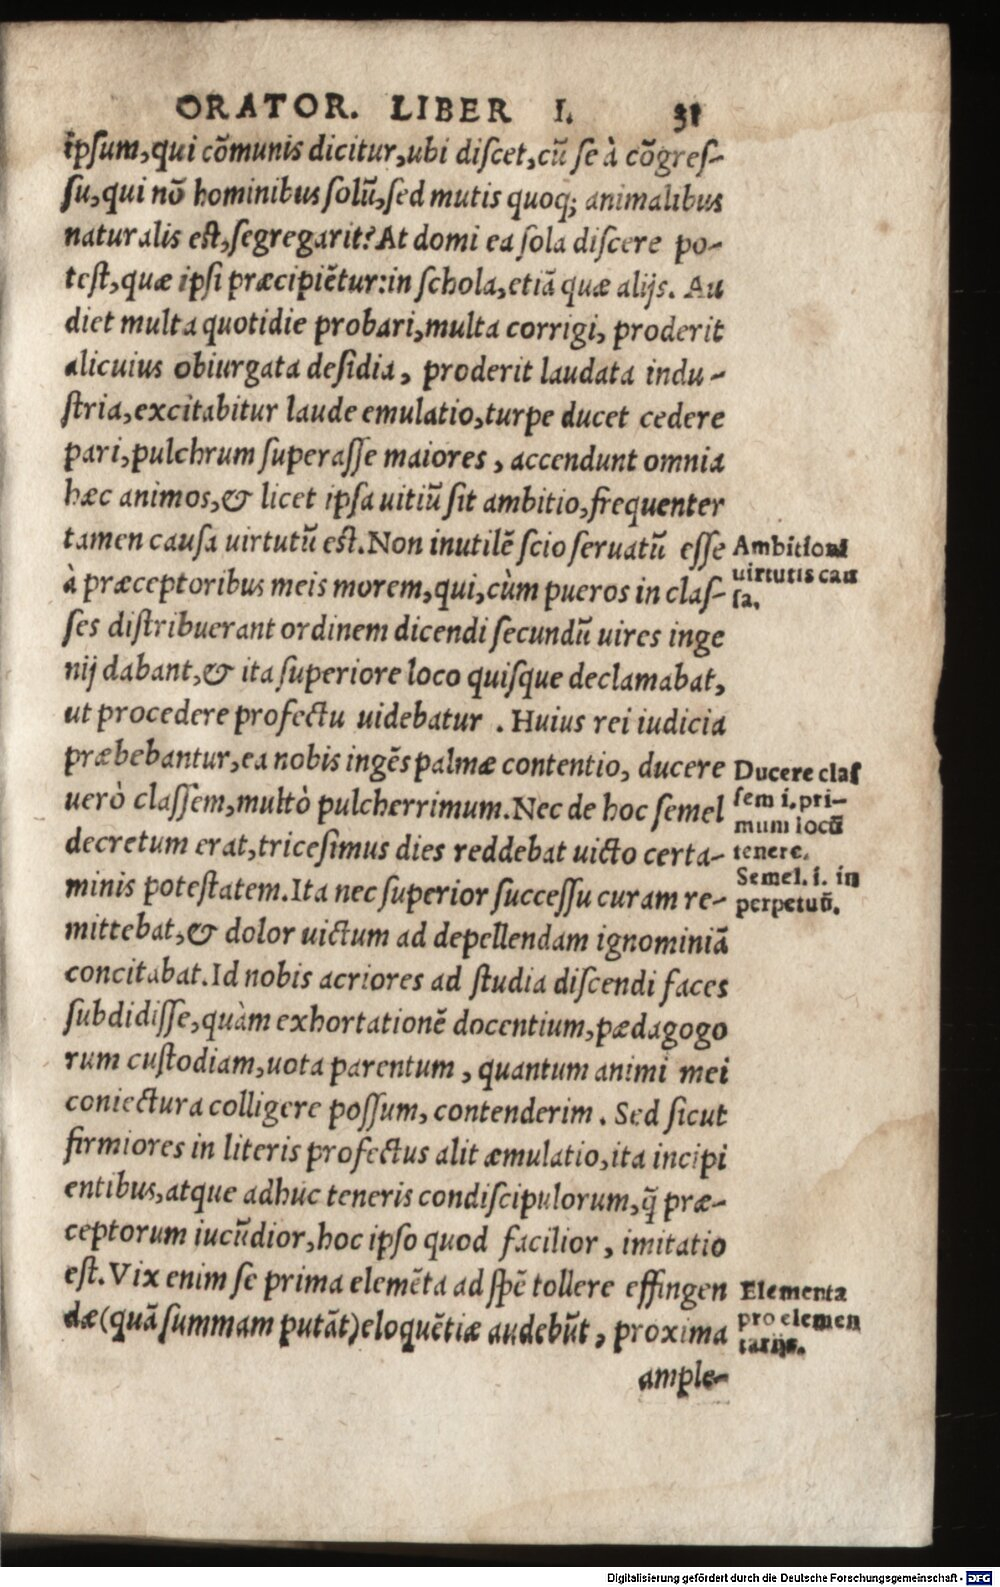 ORATOR. LIBER I. 31
ipsum, qui cõmunis dicitur, ubi discet, cũ se à cõgres-
su, qui nõ hominibus solũ, sed mutis quoq; animalibus
naturalis est, segregarit? At domi ea sola discere po-
test, quæ ipsi præcipiẽtur: in schola, etiã quæ alijs. Au
diet multa quotidie probari, multa corrigi, proderit
alicuius obiurgata desidia, proderit laudata indu-
stria, excitabitur laude emulatio, turpe ducet cedere
pari, pulchrum superasse maiores, accendunt omnia
hæc animos, & licet ipsa uitiũ sit ambitio, frequenter
tamen causa uirtutũ est. Non inutilẽ scio seruatũ esse
à præceptoribus meis morem, qui, cùm pueros in clas-
ses distribuerant ordinem dicendi secundũ uires inge
nij dabant, & ita superiore loco quisque declamabat,
ut procedere profectu uidebatur. Huius rei iudicia
præbebantur, ea nobis ingẽs palmæ contentio, ducere
uerò classem, multò pulcherrimum. Nec de hoc semel
decretum erat, tricesimus dies reddebat uicto certa-
minis potestatem. Ita nec superior successu curam re-
mittebat, & dolor uictum ad depellendam ignominiã
concitabat. Id nobis acriores ad studia discendi faces
subdidisse, quàm exhortationẽ docentium, pædagogo
rum custodiam, uota parentum, quantum animi mei
coniectura colligere possum, contenderim. Sed sicut
firmiores in literis profectus alit æmulatio, ita incipi
entibus, atque adhuc teneris condiscipulorum, q̃ præ-
ceptorum iucũdior, hoc ipso quod facilior, imitatio
est. Vix enim se prima elemẽta ad spẽ tollere effingen
dæ (quã summam putãt) eloquẽtiæ audebũt, proxima
ample-
Ambitioni
uirtutis cau
sa.
Ducere clas
sem i. pri-
mum locũ
tenere.
Semel. i. in
perpetuũ.
Elementa
pro elemen
tarijs.
Digitalisierung gefördert durch die Deutsche Forschungsgemeinschaft - DFG